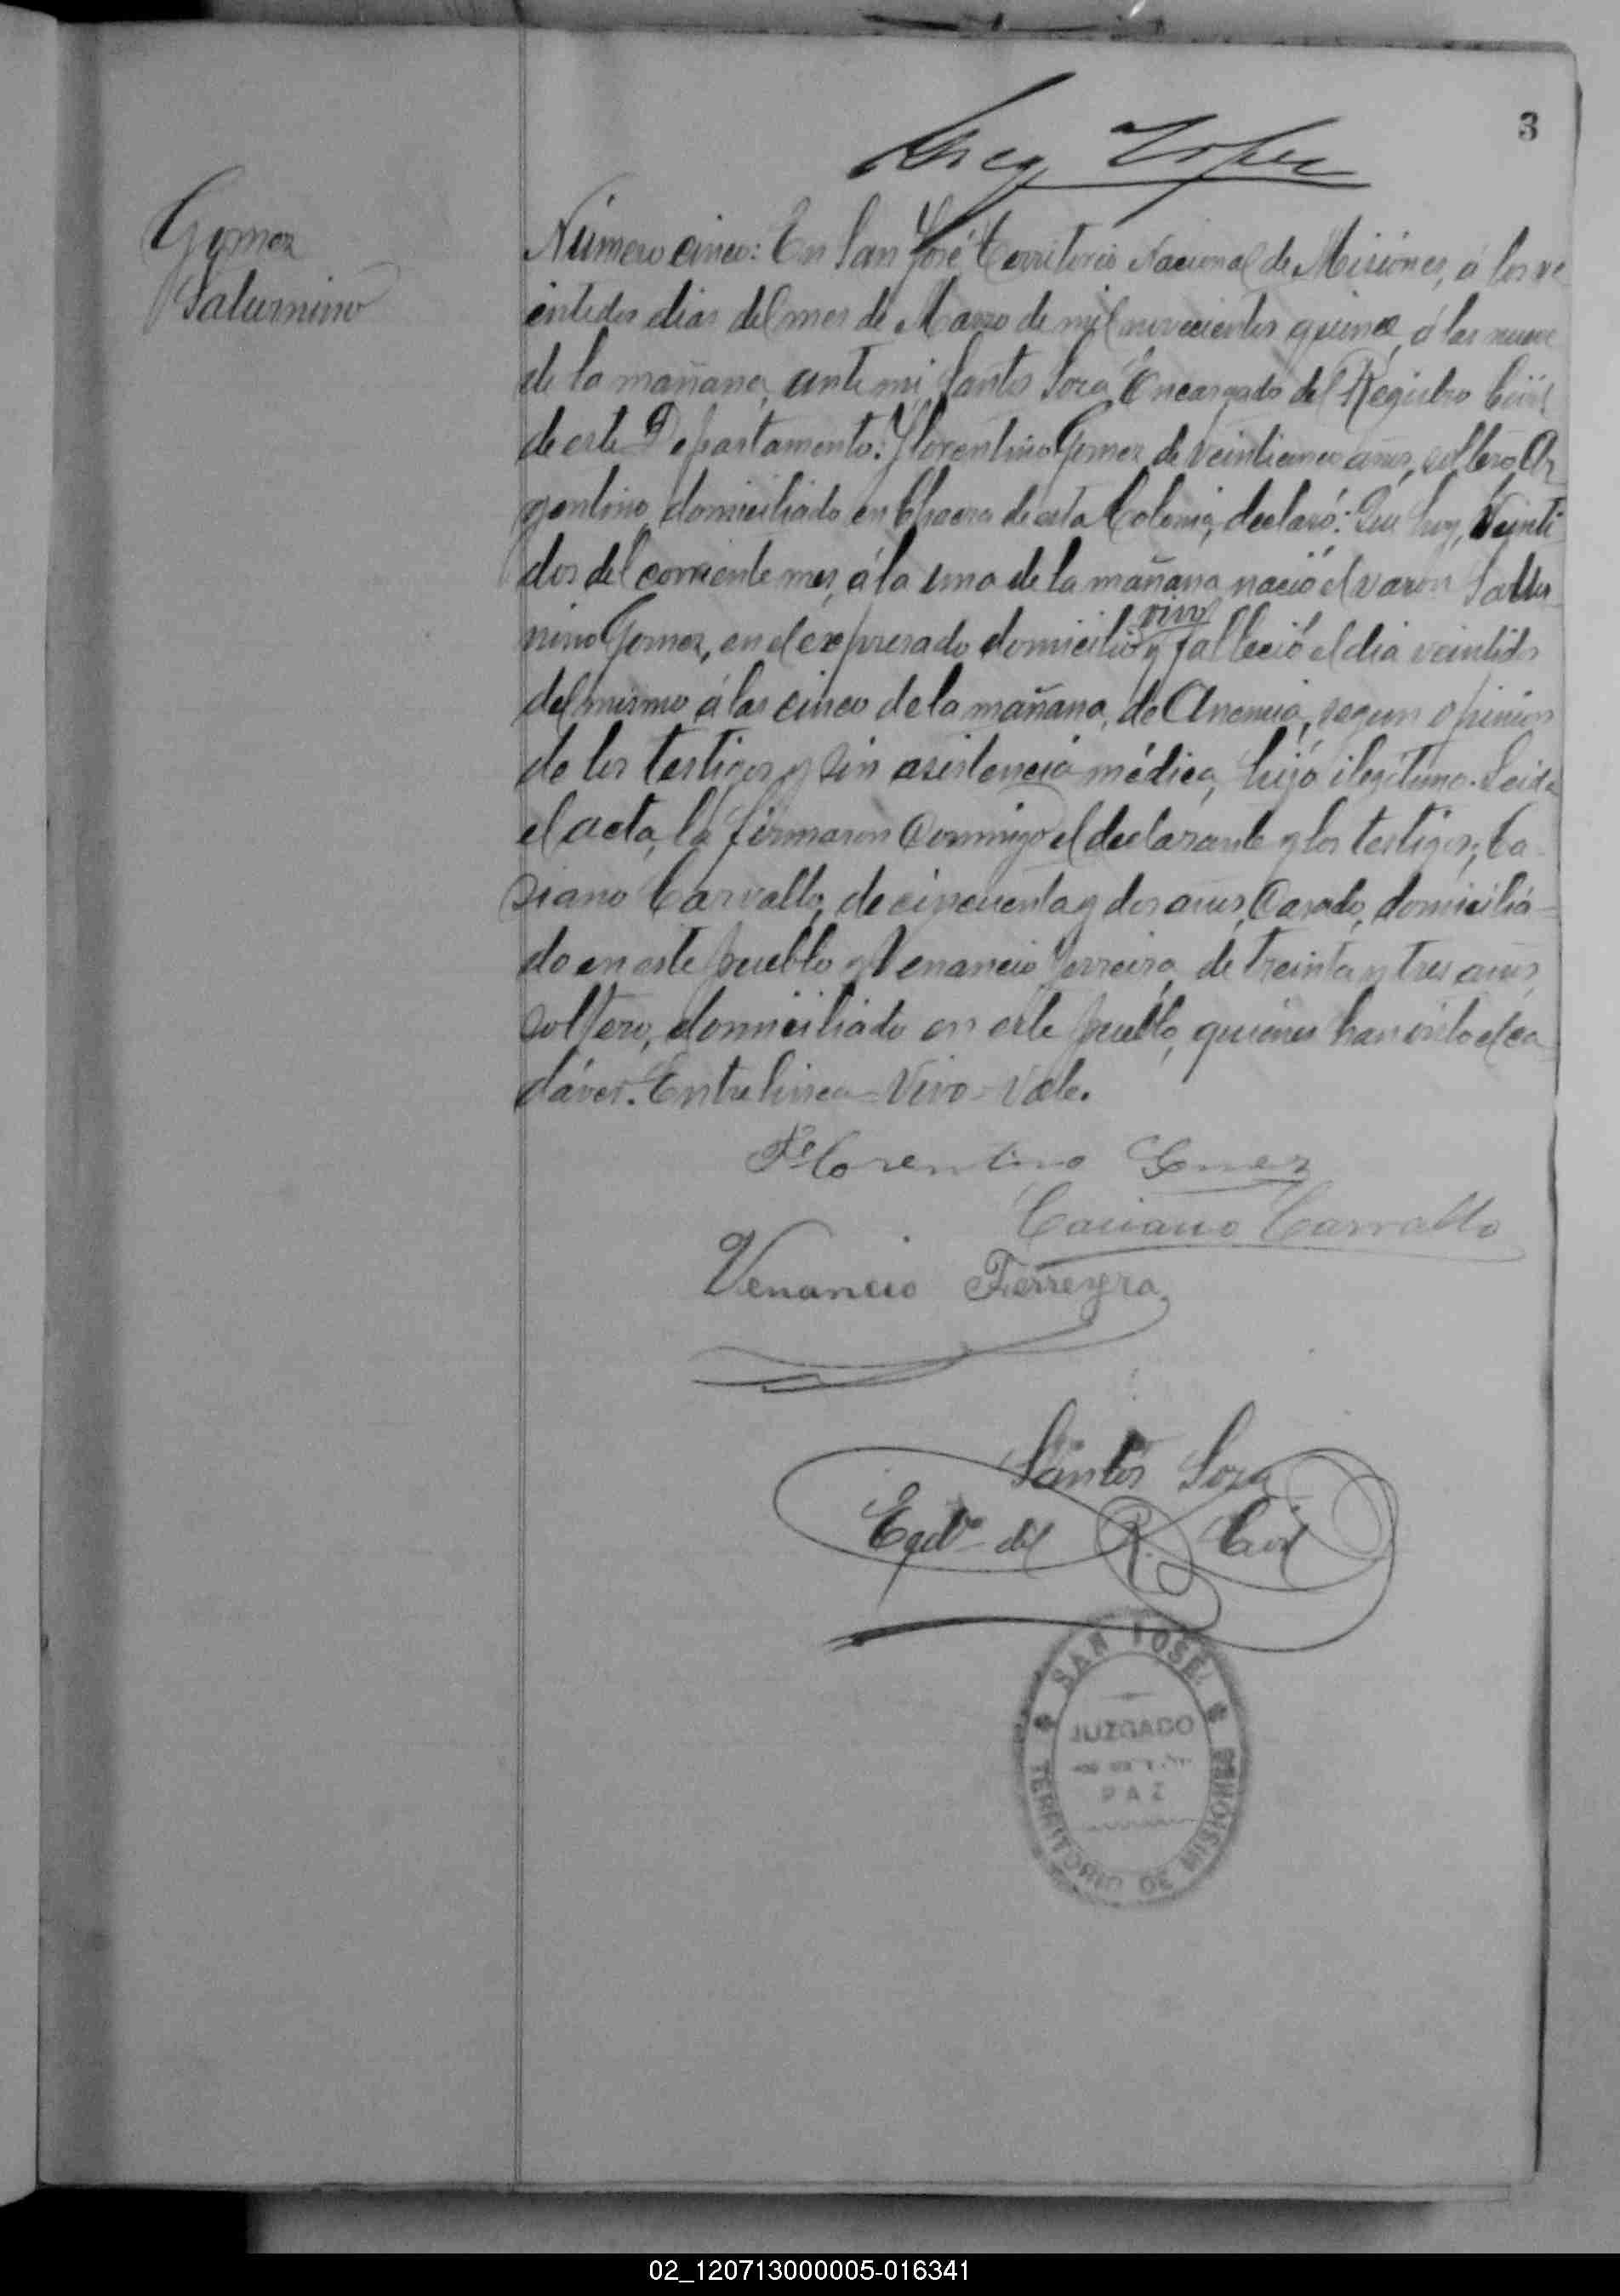 3
Greg Lopez
Gomez
Saturnino
Número cinco: En San José, Territorio Nacional de Misiones, á los ve
intidos dias del mes de Marzo de mil novecientos quince, á las nueve
de la mañana, ante mi, Santos Soza, Encargado del Registro Civil
de este Departamento: Florentino Gomez de veinticinco años, soltero, Ar
gentino, domiciliado en Chacra de esta Colonia, declaró: Que hoy, Veinti
dos del corriente mes, á la una de la mañana, nació el varon Satur
vivo
nino Gomez, en el expresado domicilio y falleció el dia veintidos
del mismo á las cinco de la mañana, de Anemia, segun opinion
de los testigos y sin asistencia médica, hijo ilegítimo. Leida
el acta, la firmaron conmigo el declarante y los testigos; Ca
siano Carvallo, de cincuenta y dos años, Casado, domicilia=
do en este pueblo y Venancio Ferreira, de treinta y tres años,
soltero, domiciliado en este pueblo, quienes han visto el ca
dáver. Entrelinea - Vivo - Vale.
Florentino Gomez
Casiano Carvallo
Venancio Ferreyra
Santos Soza
Egdo del R. Civil
SAN JOSÉ
JUZGADO
PAZ
TERRITORIO DE MISIONES
02_120713000005-016341